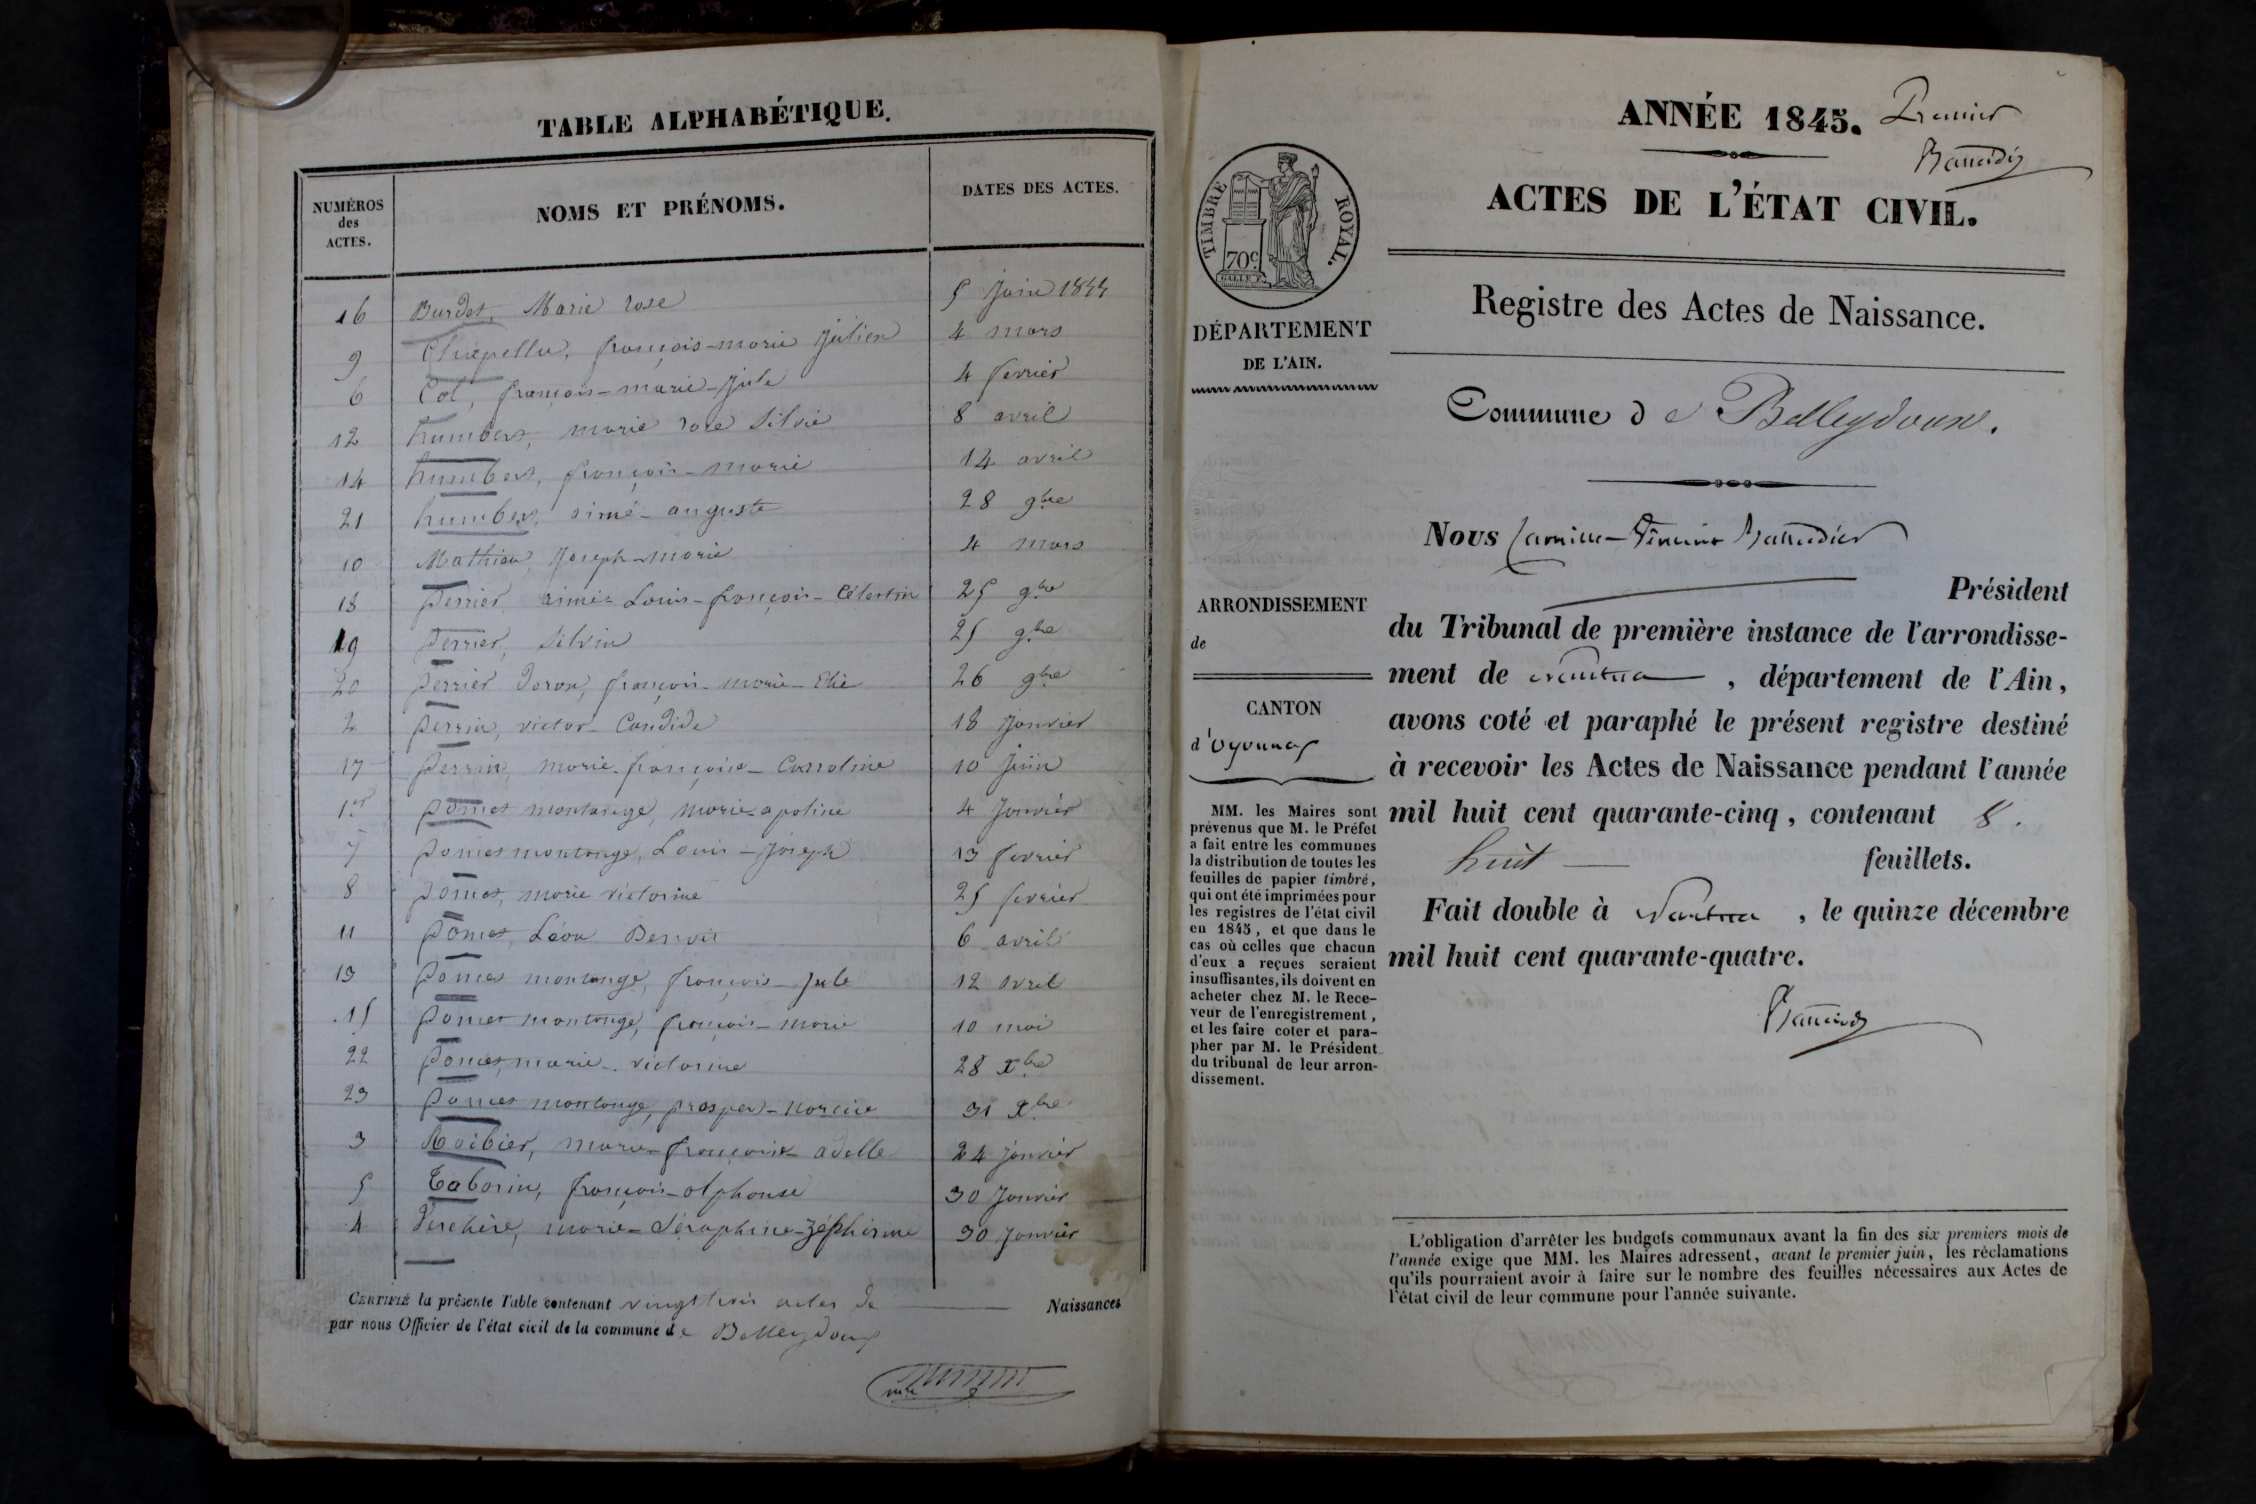 TABLE ALPHABÉTIQUE.
NUMÉROS
des
ACTES.
NOMS ET PRÉNOMS.
DATES DES ACTES.
16 Burdet, Marie rose 5 Juin 1844
9 Chapellu, françois-marie Julien 4 mars
6 Col, françois-marie-Jule 4 fevrier
12 humbert, marie rose Silvie 8 avril
14 humbert, françois-marie 14 avril
21 humbert, aimé-auguste 28 9bre
10 Mathieu, Joseph-marie 4 mars
18 perrier, aimé-Louis-françois-Célestin 25 9bre
19 perrier, Silvin 25 9bre
20 perrier Doron, françois-marie-Elie 26 9bre
2 perrin, victor-Candide 18 Janvier
17 perrin, marie-françoise-Carroline 10 Juin
1er pomet montange, marie-apoline 4 Janvier
7 pomet montange, Louis-Joseph 13 fevrier
8 pomet, marie victorine 25 fevrier
11 pomet, Léon Benoit 6 avril
13 pomet montange, françois-Jule 12 avril
15 pomet montange, françois-marie 10 mai
22 pomet, marie-victorine 28 Xbre
23 pomet montange, prosper-narcice 31 Xbre
3 Roibier, marie-françoise adelle 24 janvier
5 Taborin, françois-alphonse 30 Janvier
4 Verchère, marie-Séraphine-Zéphirine 30 Janvier
CERTIFIÉ la présente Table contenant vingt trois actes de Naissances
par nous Officier de l'état civil de la commune de Belleydoux
ANNÉE 1845. Premier
ACTES DE L'ÉTAT CIVIL.
TIMBRE ROYAL.
70c
Registre des Actes de Naissance.
DÉPARTEMENT
DE L'AIN.
Commune de Belleydoux.
Nous
Président
ARRONDISSEMENT
de
CANTON
d'Oyonnax
du Tribunal de première instance de l'arrondisse-
ment de nantua , département de l'Ain,
avons coté et paraphé le présent registre destiné
à recevoir les Actes de Naissance pendant l'année
mil huit cent quarante-cinq, contenant 8.
huit feuillets.
Fait double à Nantua , le quinze décembre
mil huit cent quarante-quatre.
MM. les Maires sont
prévenus que M. le Préfet
a fait entre les communes
la distribution de toutes les
feuilles de papier timbré,
qui ont été imprimées pour
les registres de l'état civil
en 1845, et que dans le
cas où celles que chacun
d'eux a reçues seraient
insuffisantes, ils doivent en
acheter chez M. le Rece-
veur de l'enregistrement,
et les faire coter et para-
pher par M. le Président
du tribunal de leur arron-
dissement.
L'obligation d'arrêter les budgets communaux avant la fin des six premiers mois de
l'année exige que MM. les Maires adressent, avant le premier juin, les réclamations
qu'ils pourraient avoir à faire sur le nombre des feuilles nécessaires aux Actes de
l'état civil de leur commune pour l'année suivante.